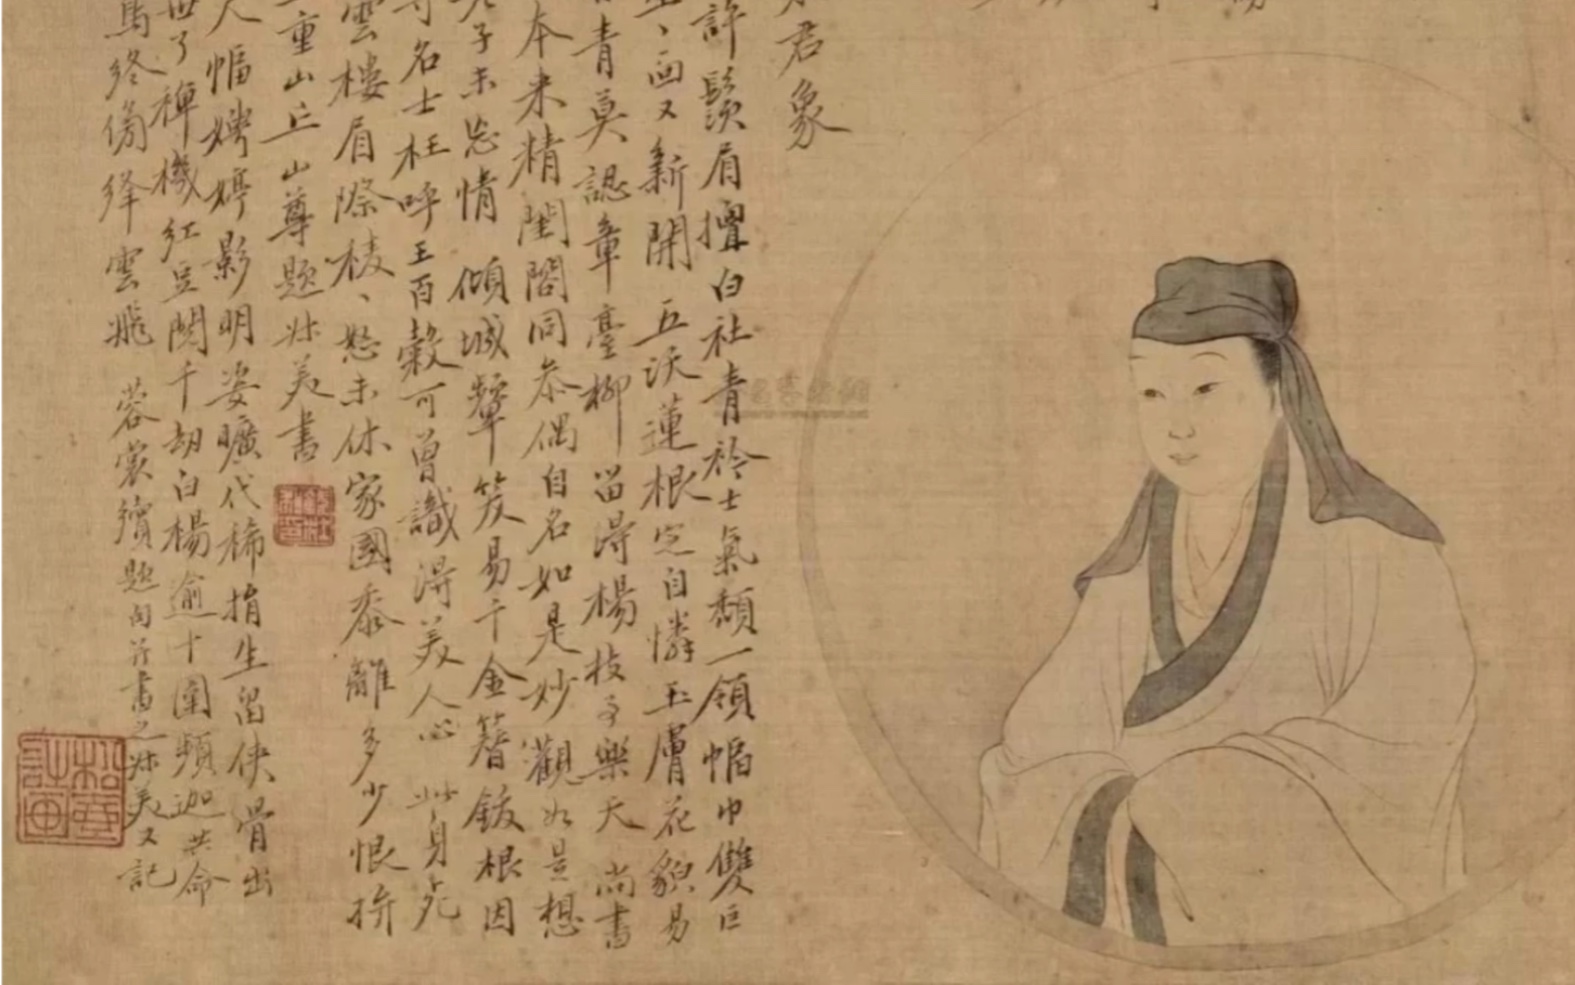 君象
許鬚眉擅白社青衿士氣頹一領幅巾雙巨
面又新開 五沃蓮根定自憐玉膚花貌易
青莫認章臺柳留得楊枝事樂天 尚書
本來精閨閤同參偶自名如是妙觀如是想
子未忘情 傾城顰笑易千金簪鈸根因
名士枉呼王百穀可曾識得美人心 此身死
雲樓眉際稜、愁未休家國黍離多少恨拚
重山丘 山尊題 妹美書
人幅娉婷影明姿曠代稀捐生留俠骨出
世了禪機紅豆閱千劫白楊逾十圍頻迦共命
馬終傍絳雲飛 蓉裳續題 囱并書之 妹美又記